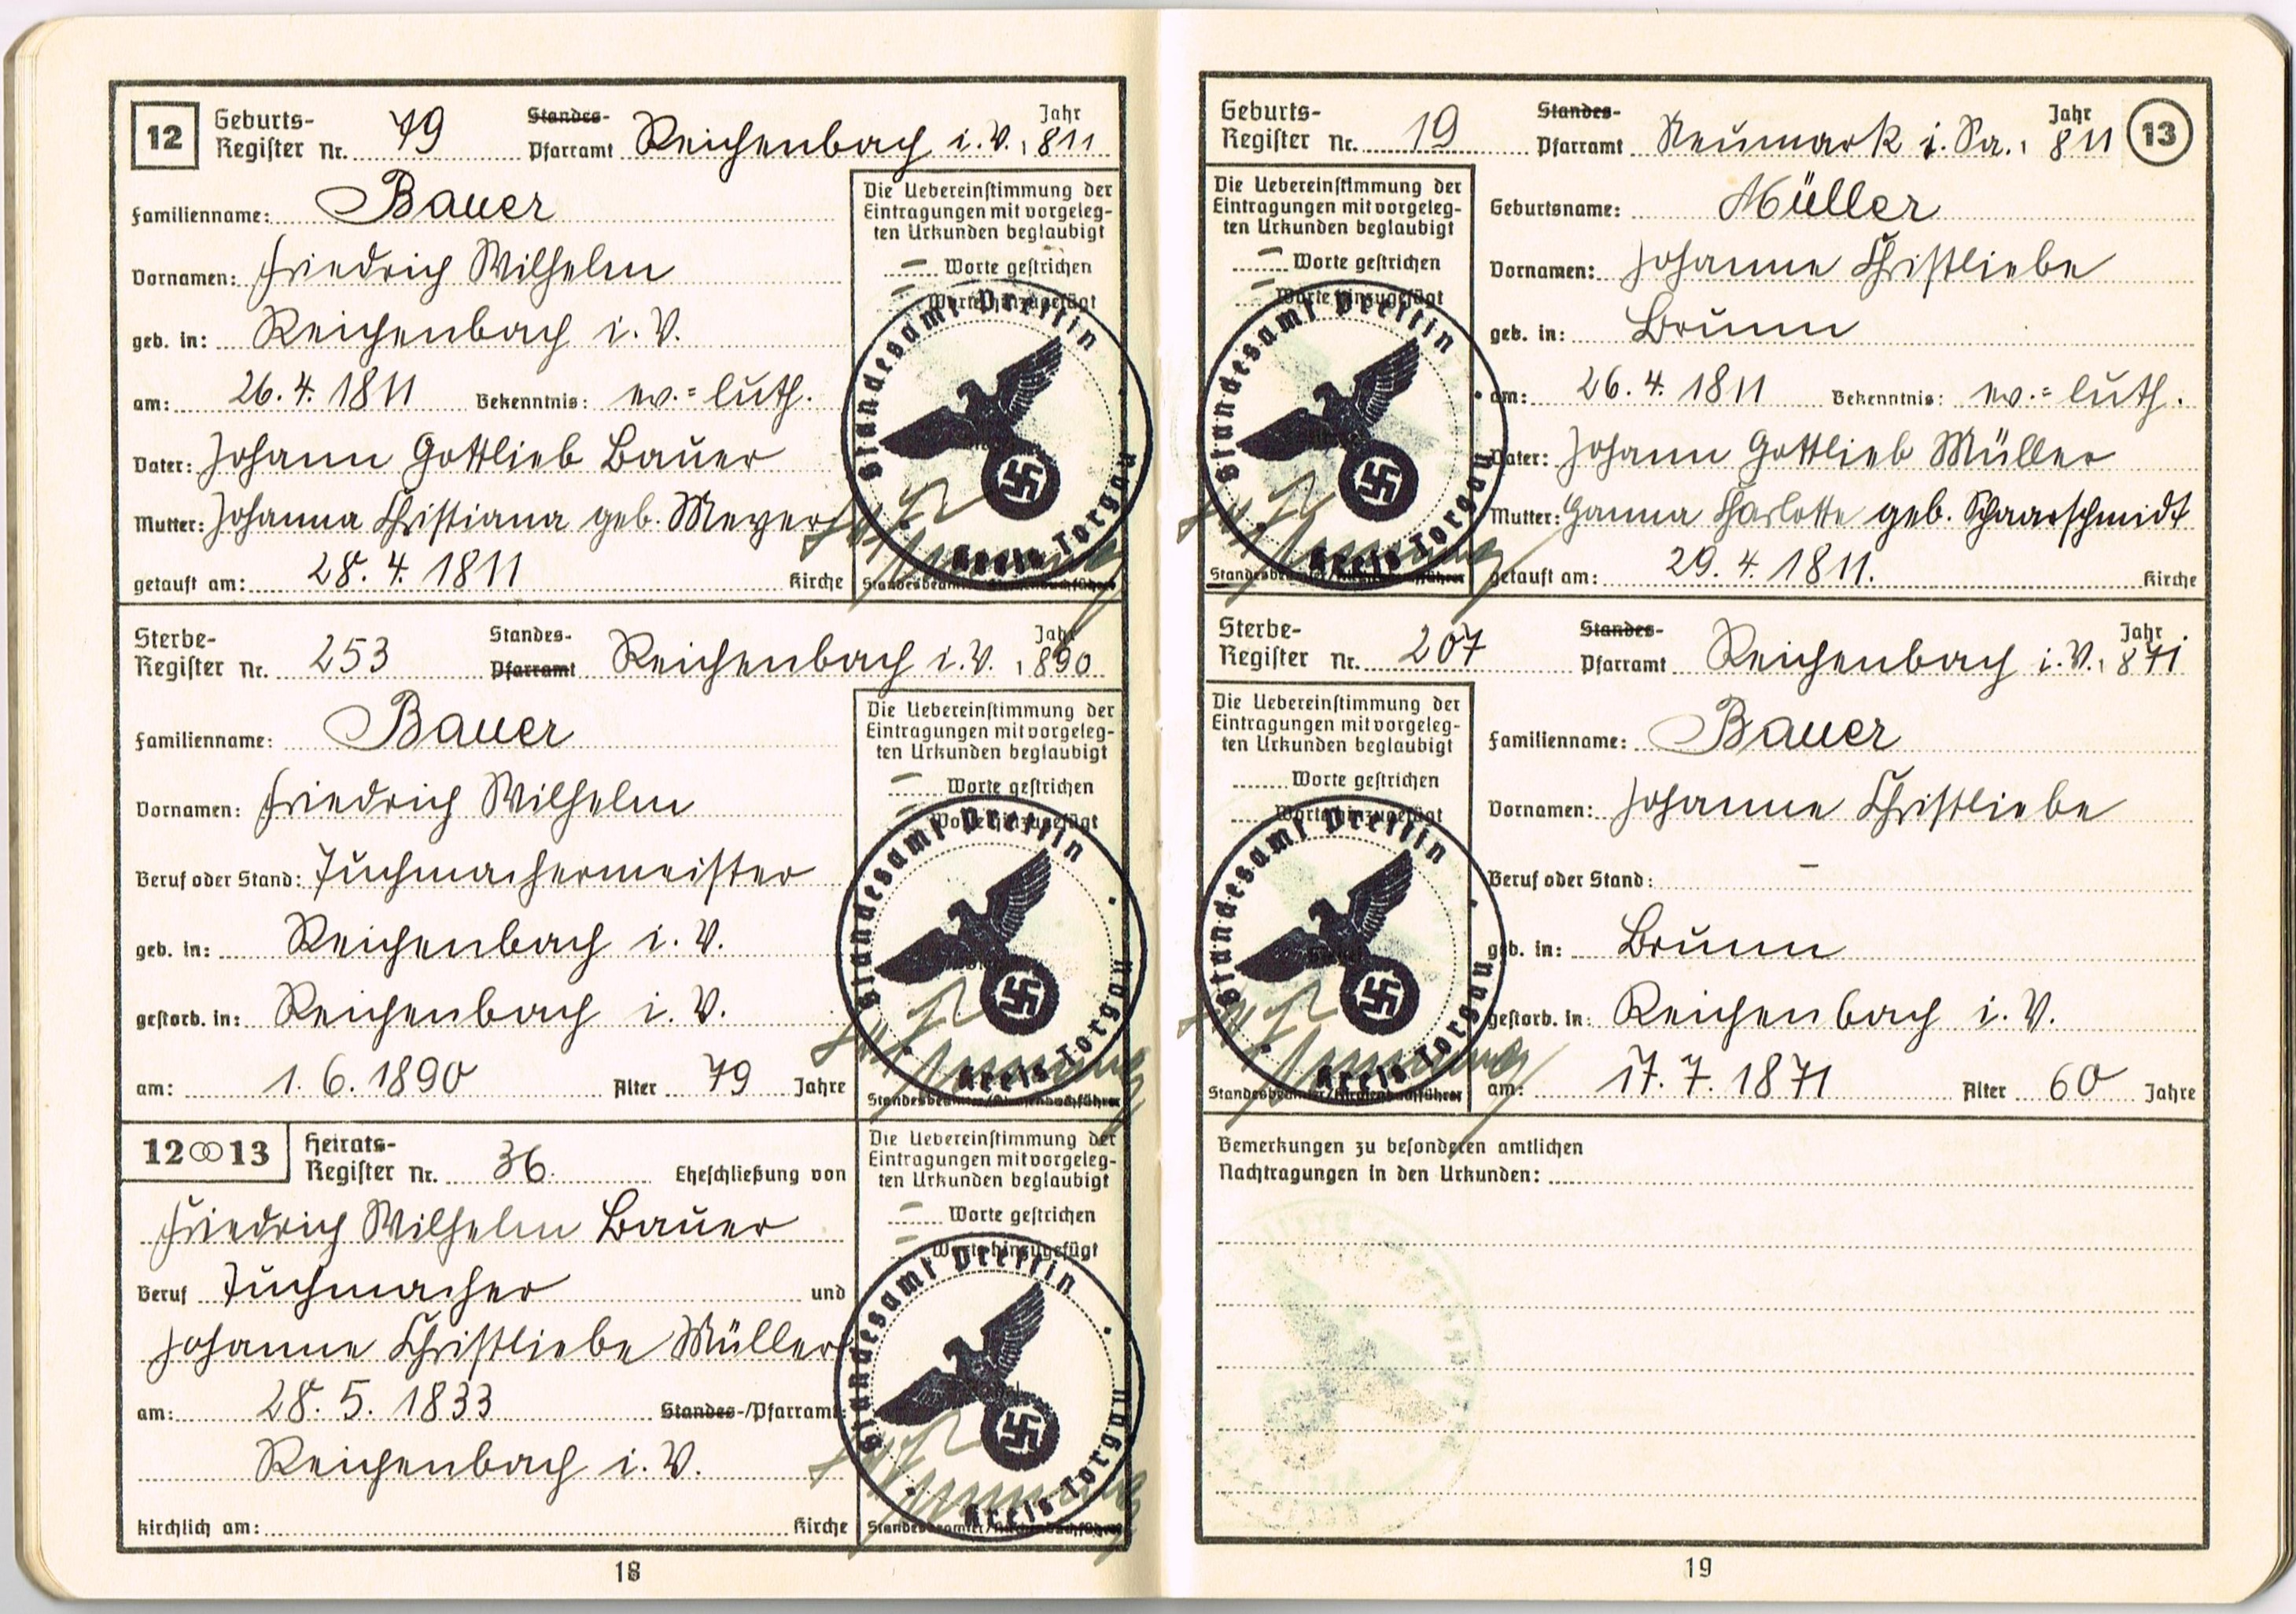 12
Geburts-
Register Nr. 79 Standes-
Pfarramt Reichenbach i. V. Jahr 1811
Familienname: Bauer
Vornamen: Friedrich Wilhelm
geb. in: Reichenbach i. V.
am: 26. 4. 1811 Bekenntnis: ev.=luth.
Vater: Johann Gottlieb Bauer
Mutter: Johanna Christiana geb. Meyer
getauft am: 28. 4. 1811 Kirche
Die Uebereinstimmung der
Eintragungen mit vorgeleg-
ten Urkunden beglaubigt
Worte gestrichen
Worte hinzugefügt
Standesamt Prettin
Kreis Torgau
Standesbeamter/Kirchenbuchführer
Sterbe-
Register Nr. 253 Standes-
Pfarramt Reichenbach i. V. Jahr 1890
Familienname: Bauer
Vornamen: Friedrich Wilhelm
Beruf oder Stand: Tuchmachermeister
geb. in: Reichenbach i. V.
gestorb. in: Reichenbach i. V.
am: 1. 6. 1890 Alter 79 Jahre
Die Uebereinstimmung der
Eintragungen mit vorgeleg-
ten Urkunden beglaubigt
Worte gestrichen
Worte hinzugefügt
Standesamt Prettin
Kreis Torgau
Standesbeamter/Kirchenbuchführer
12 ∞ 13
Heirats-
Register Nr. 36. Eheschließung von
Friedrich Wilhelm Bauer
Beruf Tuchmacher und
Johanne Christliebe Müller
am: 28. 5. 1833 Standes-/Pfarramt:
Reichenbach i. V.
kirchlich am: Kirche
Die Uebereinstimmung der
Eintragungen mit vorgeleg-
ten Urkunden beglaubigt
Worte gestrichen
Worte hinzugefügt
Standesamt Prettin
Kreis Torgau
Standesbeamter/Kirchenbuchführer
18
Geburts-
Register Nr. 19 Standes-
Pfarramt Neumark i. Sa. Jahr 1811
13
Die Uebereinstimmung der
Eintragungen mit vorgeleg-
ten Urkunden beglaubigt
Worte gestrichen
Worte hinzugefügt
Standesamt Prettin
Kreis Torgau
Standesbeamter/Kirchenbuchführer
Geburtsname: Müller
Vornamen: Johanne Christliebe
geb. in: Brunn
am: 26. 4. 1811 Bekenntnis: ev.=luth.
Vater: Johann Gottlieb Müller
Mutter: Hanna Charlotte geb. Schaarschmidt
getauft am: 29. 4. 1811. Kirche
Sterbe-
Register Nr. 207 Standes-
Pfarramt Reichenbach i. V. Jahr 1871
Die Uebereinstimmung der
Eintragungen mit vorgeleg-
ten Urkunden beglaubigt
Worte gestrichen
Worte hinzugefügt
Standesamt Prettin
Kreis Torgau
Standesbeamter/Kirchenbuchführer
Familienname: Bauer
Vornamen: Johanne Christliebe
Beruf oder Stand: –
geb. in: Brunn
gestorb. in: Reichenbach i. V.
am: 17. 7. 1871 Alter 60 Jahre
Bemerkungen zu besonderen amtlichen
Nachtragungen in den Urkunden:
19